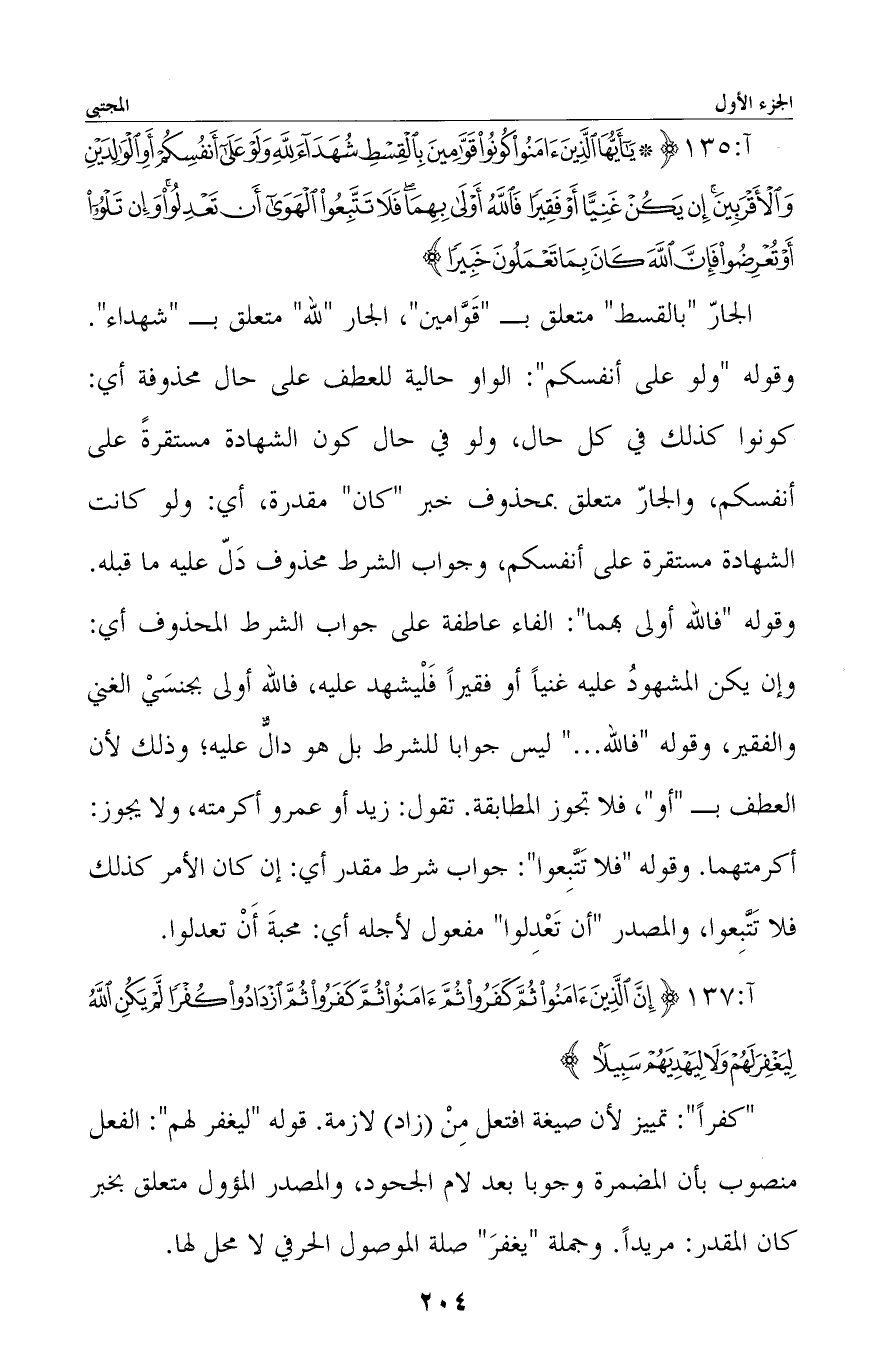 الجزء الأول المجتبى
آ:١٣٥ ﴿ ۞ يَٰٓأَيُّهَا ٱلَّذِينَ ءَامَنُوا۟ كُونُوا۟ قَوَّٰمِينَ بِٱلْقِسْطِ شُهَدَآءَ لِلَّهِ وَلَوْ عَلَىٰٓ أَنفُسِكُمْ أَوِ ٱلْوَٰلِدَيْنِ
وَٱلْأَقْرَبِينَ ۚ إِن يَكُنْ غَنِيًّا أَوْ فَقِيرًا فَٱللَّهُ أَوْلَىٰ بِهِمَا ۖ فَلَا تَتَّبِعُوا۟ ٱلْهَوَىٰٓ أَن تَعْدِلُوا۟ ۚ وَإِن تَلْوُۥٓا۟
أَوْ تُعْرِضُوا۟ فَإِنَّ ٱللَّهَ كَانَ بِمَا تَعْمَلُونَ خَبِيرًا ﴾
الجارّ "بالقسط" متعلق بـ "قَوَّامين"، الجار "لله" متعلق بـ "شهداء".
وقوله "ولو على أنفسكم": الواو حالية للعطف على حال محذوفة أي:
كونوا كذلك في كل حال، ولو في حال كون الشهادة مستقرةً على
أنفسكم، والجارّ متعلق بمحذوف خبر "كان" مقدرة، أي: ولو كانت
الشهادة مستقرة على أنفسكم، وجواب الشرط محذوف دَلّ عليه ما قبله.
وقوله "فالله أولى بهما": الفاء عاطفة على جواب الشرط المحذوف أي:
وإن يكن المشهودُ عليه غنياً أو فقيراً فَلْيشهد عليه، فالله أولى بجنسَيْ الغني
والفقير، وقوله "فالله..." ليس جوابا للشرط بل هو دالٌّ عليه؛ وذلك لأن
العطف بـ "أو"، فلا تجوز المطابقة. تقول: زيد أو عمرو أكرمته، ولا يجوز:
أكرمتهما. وقوله "فلا تَتَّبِعوا": جواب شرط مقدر أي: إن كان الأمر كذلك
فلا تَتَّبِعوا، والمصدر "أن تَعْدِلوا" مفعول لأجله أي: محبةَ أَنْ تعدلوا.
آ:١٣٧ ﴿ إِنَّ ٱلَّذِينَ ءَامَنُوا۟ ثُمَّ كَفَرُوا۟ ثُمَّ ءَامَنُوا۟ ثُمَّ كَفَرُوا۟ ثُمَّ ٱزْدَادُوا۟ كُفْرًا لَّمْ يَكُنِ ٱللَّهُ
لِيَغْفِرَ لَهُمْ وَلَا لِيَهْدِيَهُمْ سَبِيلًا ﴾
"كفراً": تمييز لأن صيغة افتعل مِنْ (زاد) لازمة. قوله "ليغفر لهم": الفعل
منصوب بأن المضمرة وجوبا بعد لام الجحود، والمصدر المؤول متعلق بخبر
كان المقدر: مريداً. وجملة "يغفرَ" صلة الموصول الحرفي لا محل لها.
٢٠٤